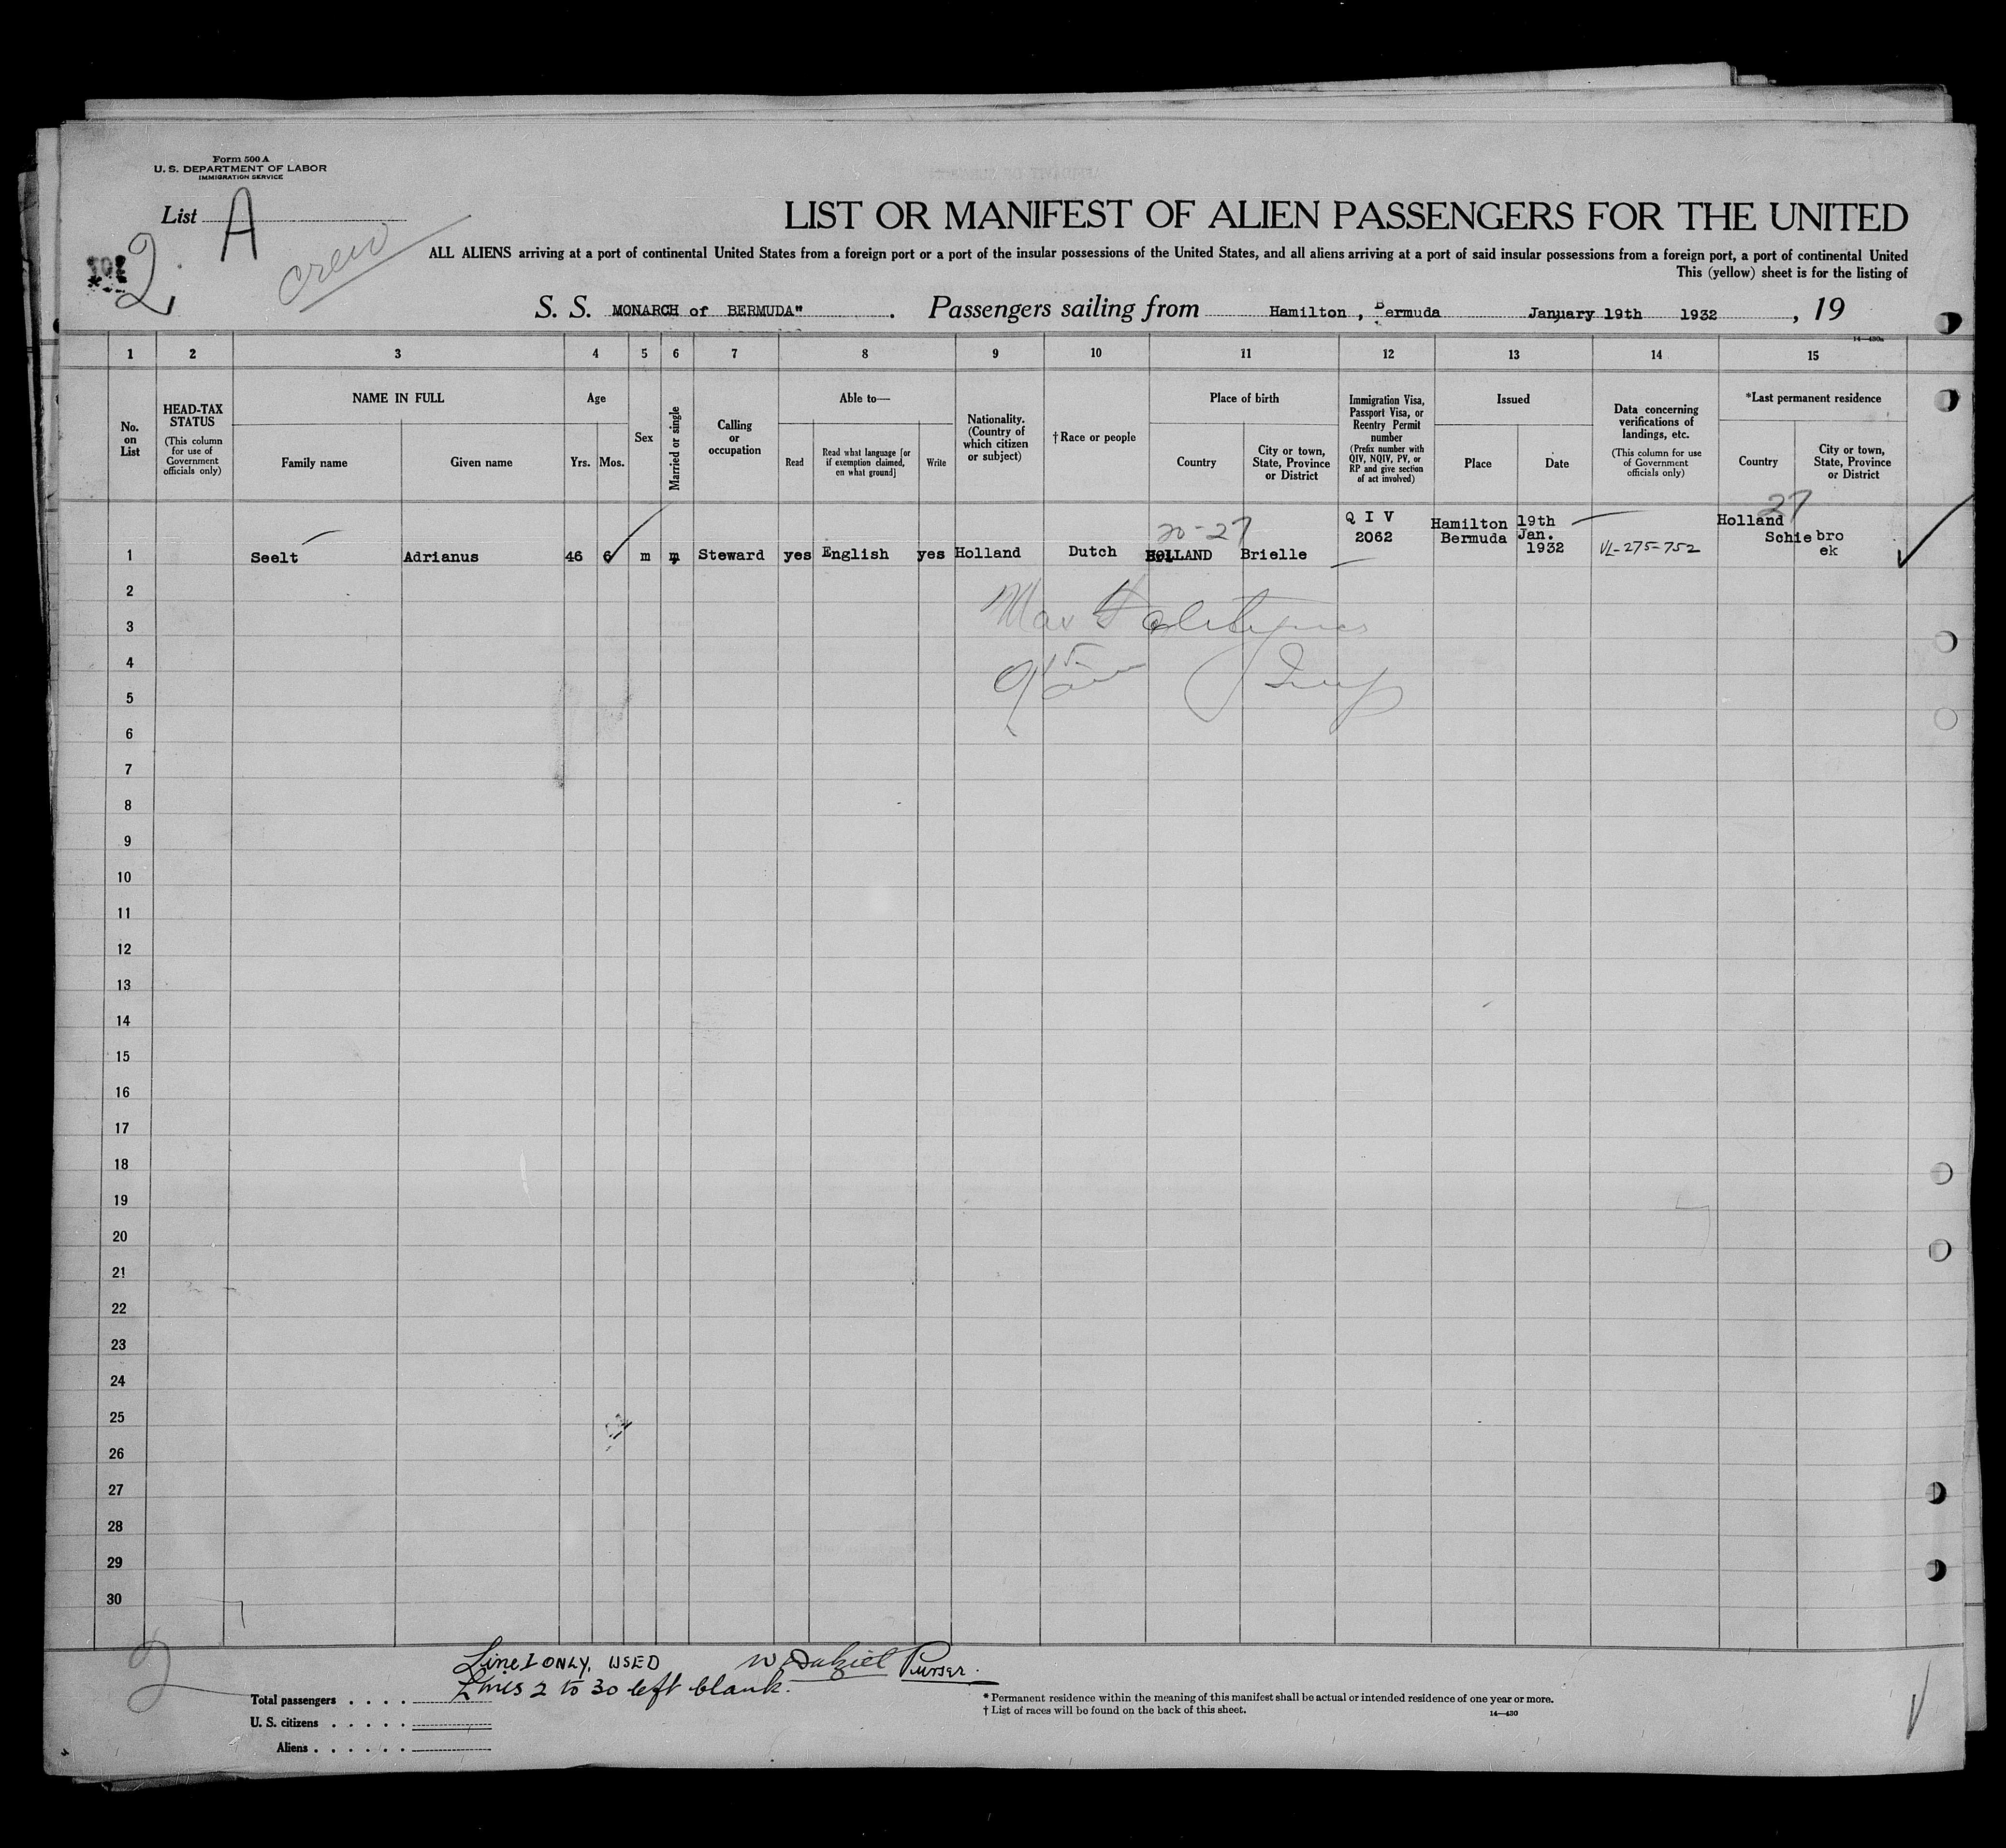 Form 500 A
U. S. DEPARTMENT OF LABOR
IMMIGRATION SERVICE
List A
2
crew
LIST OR MANIFEST OF ALIEN PASSENGERS FOR THE UNITED
ALL ALIENS arriving at a port of continental United States from a foreign port or a port of the insular possessions of the United States, and all aliens arriving at a port of said insular possessions from a foreign port, a port of continental United
This (yellow) sheet is for the listing of
S. S. MONARCH of BERMUDA" . Passengers sailing from Hamilton , Bermuda January 19th 1932 , 19
14—430a
1 2 3 4 5 6 7 8 9 10 11 12 13 14 15
No. on List
HEAD-TAX STATUS (This column for use of Government officials only)
NAME IN FULL
Family name Given name
Age
Yrs. Mos.
Sex
Married or single
Calling or occupation
Able to—
Read Read what language [or if exemption claimed, on what ground] Write
Nationality. (Country of which citizen or subject)
†Race or people
Place of birth
Country City or town, State, Province or District
Immigration Visa, Passport Visa, or Reentry Permit number (Prefix number with QIV, NQIV, PV, or RP and give section of act involved)
Issued
Place Date
Data concerning verifications of landings, etc. (This column for use of Government officials only)
*Last permanent residence
Country City or town, State, Province or District
20-27 27
Q I V Hamilton 19th Holland
2062 Bermuda Jan. Schiebro
1932 VL-275-752 ek
1 Seelt Adrianus 46 6 m m Steward yes English yes Holland Dutch HOLLAND Brielle
2
3
4
5
6
7
8
9
10
11
12
13
14
15
16
17
18
19
20
21
22
23
24
25
26
27
28
29
30
2
Line 1 ONLY, USED
Lines 2 to 30 left blank.
Purser.
Total passengers . . . .
U. S. citizens . . . . .
Aliens . . . . . .
* Permanent residence within the meaning of this manifest shall be actual or intended residence of one year or more.
† List of races will be found on the back of this sheet.
14—430